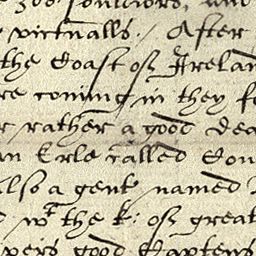 300 souldiors, and
victualls / After
the Coast of Irelan
re coming in they fo
r rather a good dea
an Erle called Don
also a gent named
wt the k: of great
pers good Captens